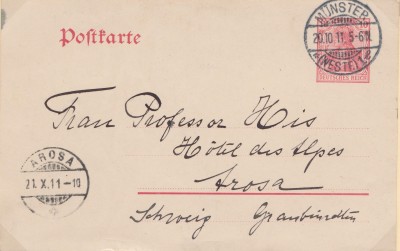 Postkarte
MÜNSTER
20.10.11. 5-6N.
(WESTF.) 1
DEUTSCHES REICH
Frau Professor His
Hôtel des Alpes
Arosa
Schweiz Graubündten
AROSA
21. X. 11 – 10